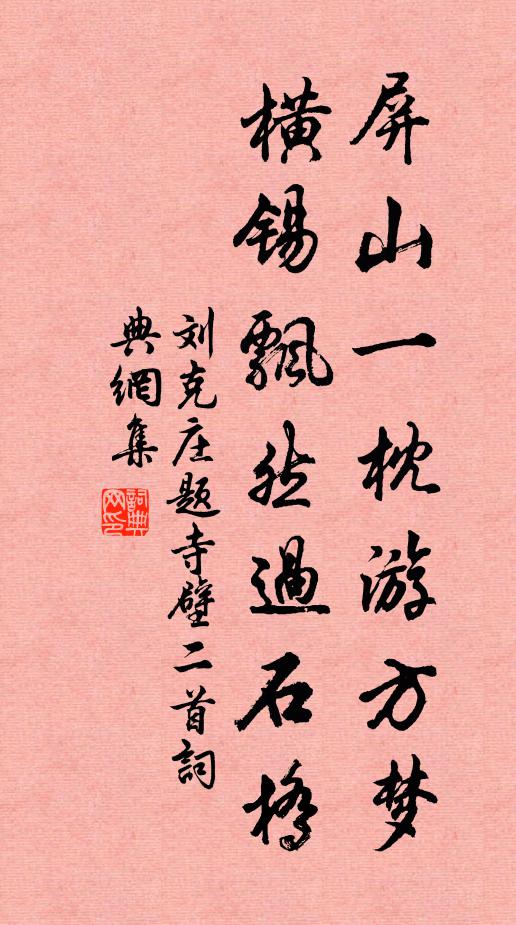 屏山一枕游方梦
横锡飘然过石桥
刘克庄题寺壁二首詞
典網集
詞典网印